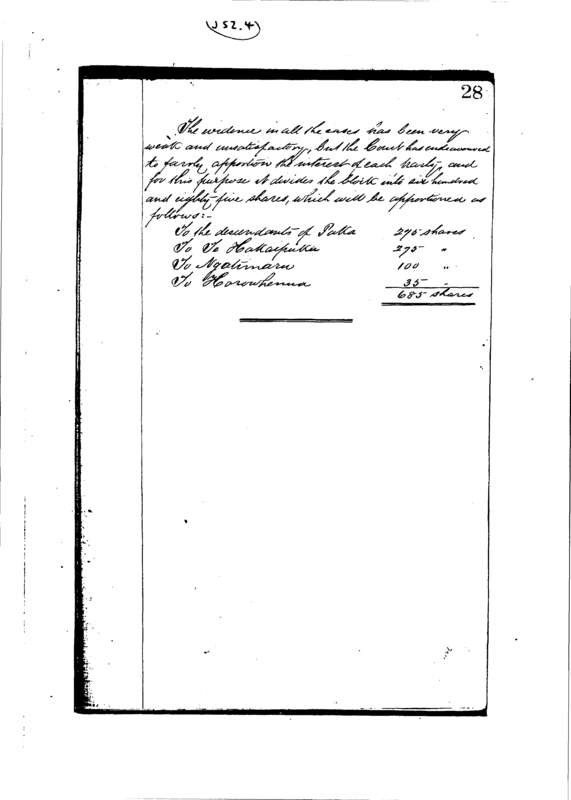 J 52.4
28
The evidence in all the cases has been very
weak and unsatisfactory, but the Court has endeavoured
to fairly apportion the interest of each party, and
for this purpose it divides the block into six hundred
and eighty-five shares, which will be apportioned as
follows:-
To the descendants of Paka 275 shares
To Te Hakaipuku 275 "
To Ngatimaru 100 "
To Horowhenua 35 "
685 shares